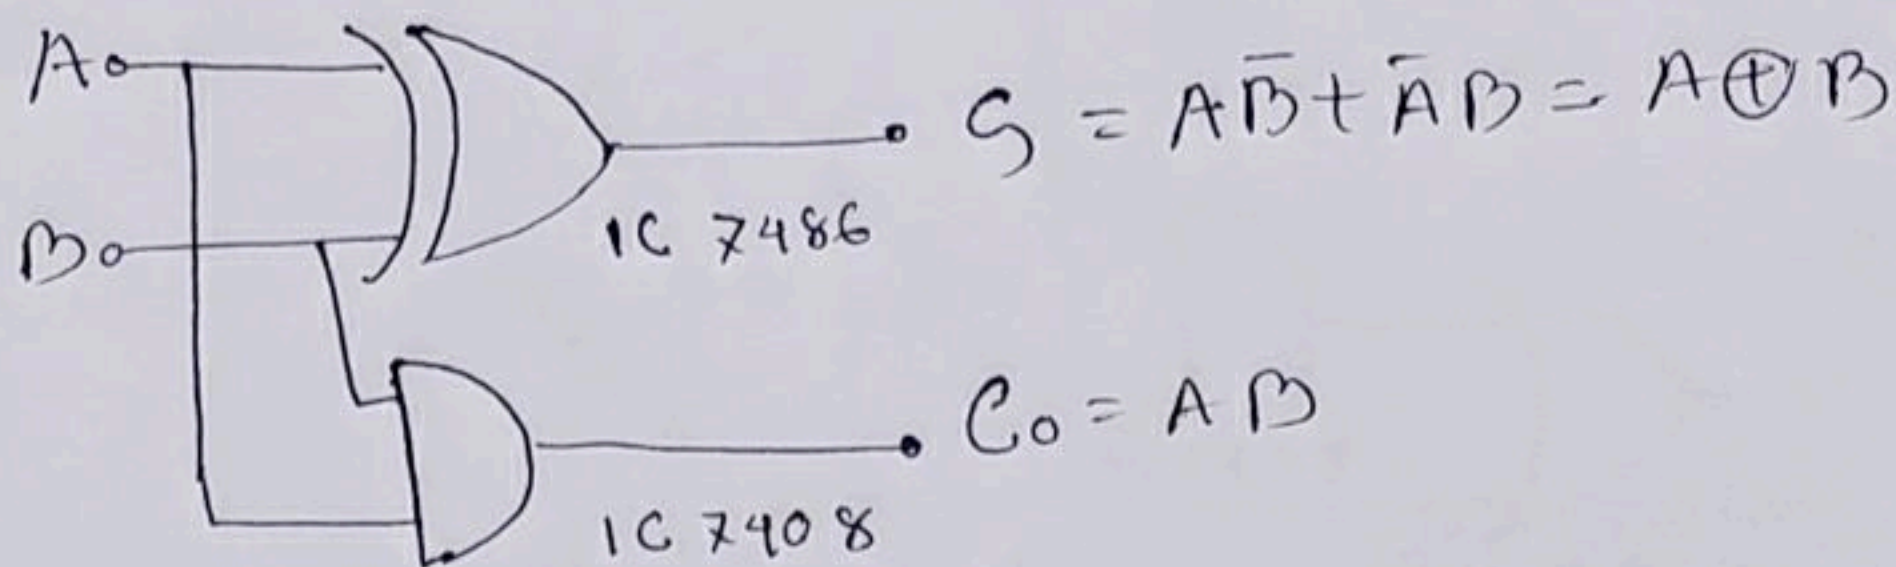 A
S = AB̅ + A̅B = A⊕B
B
IC 7486
Co = AB
IC 7408